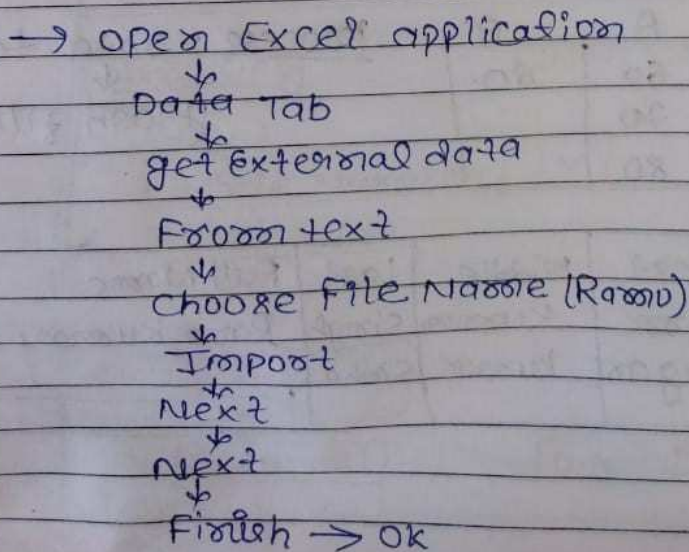 → open Excel application
↓
Data Tab
↓
get External data
↓
From text
↓
Choose File Name (Ramu)
↓
Import
↓
Next
↓
Next
↓
Finish → Ok